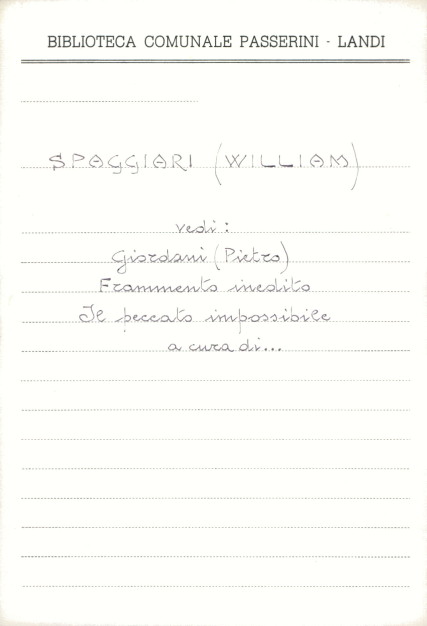 BIBLIOTECA COMUNALE PASSERINI - LANDI
SPAGGIARI (WILLIAM)
vedi :
Giordani (Pietro)
Frammento inedito
Il peccato impossibile
a cura di...